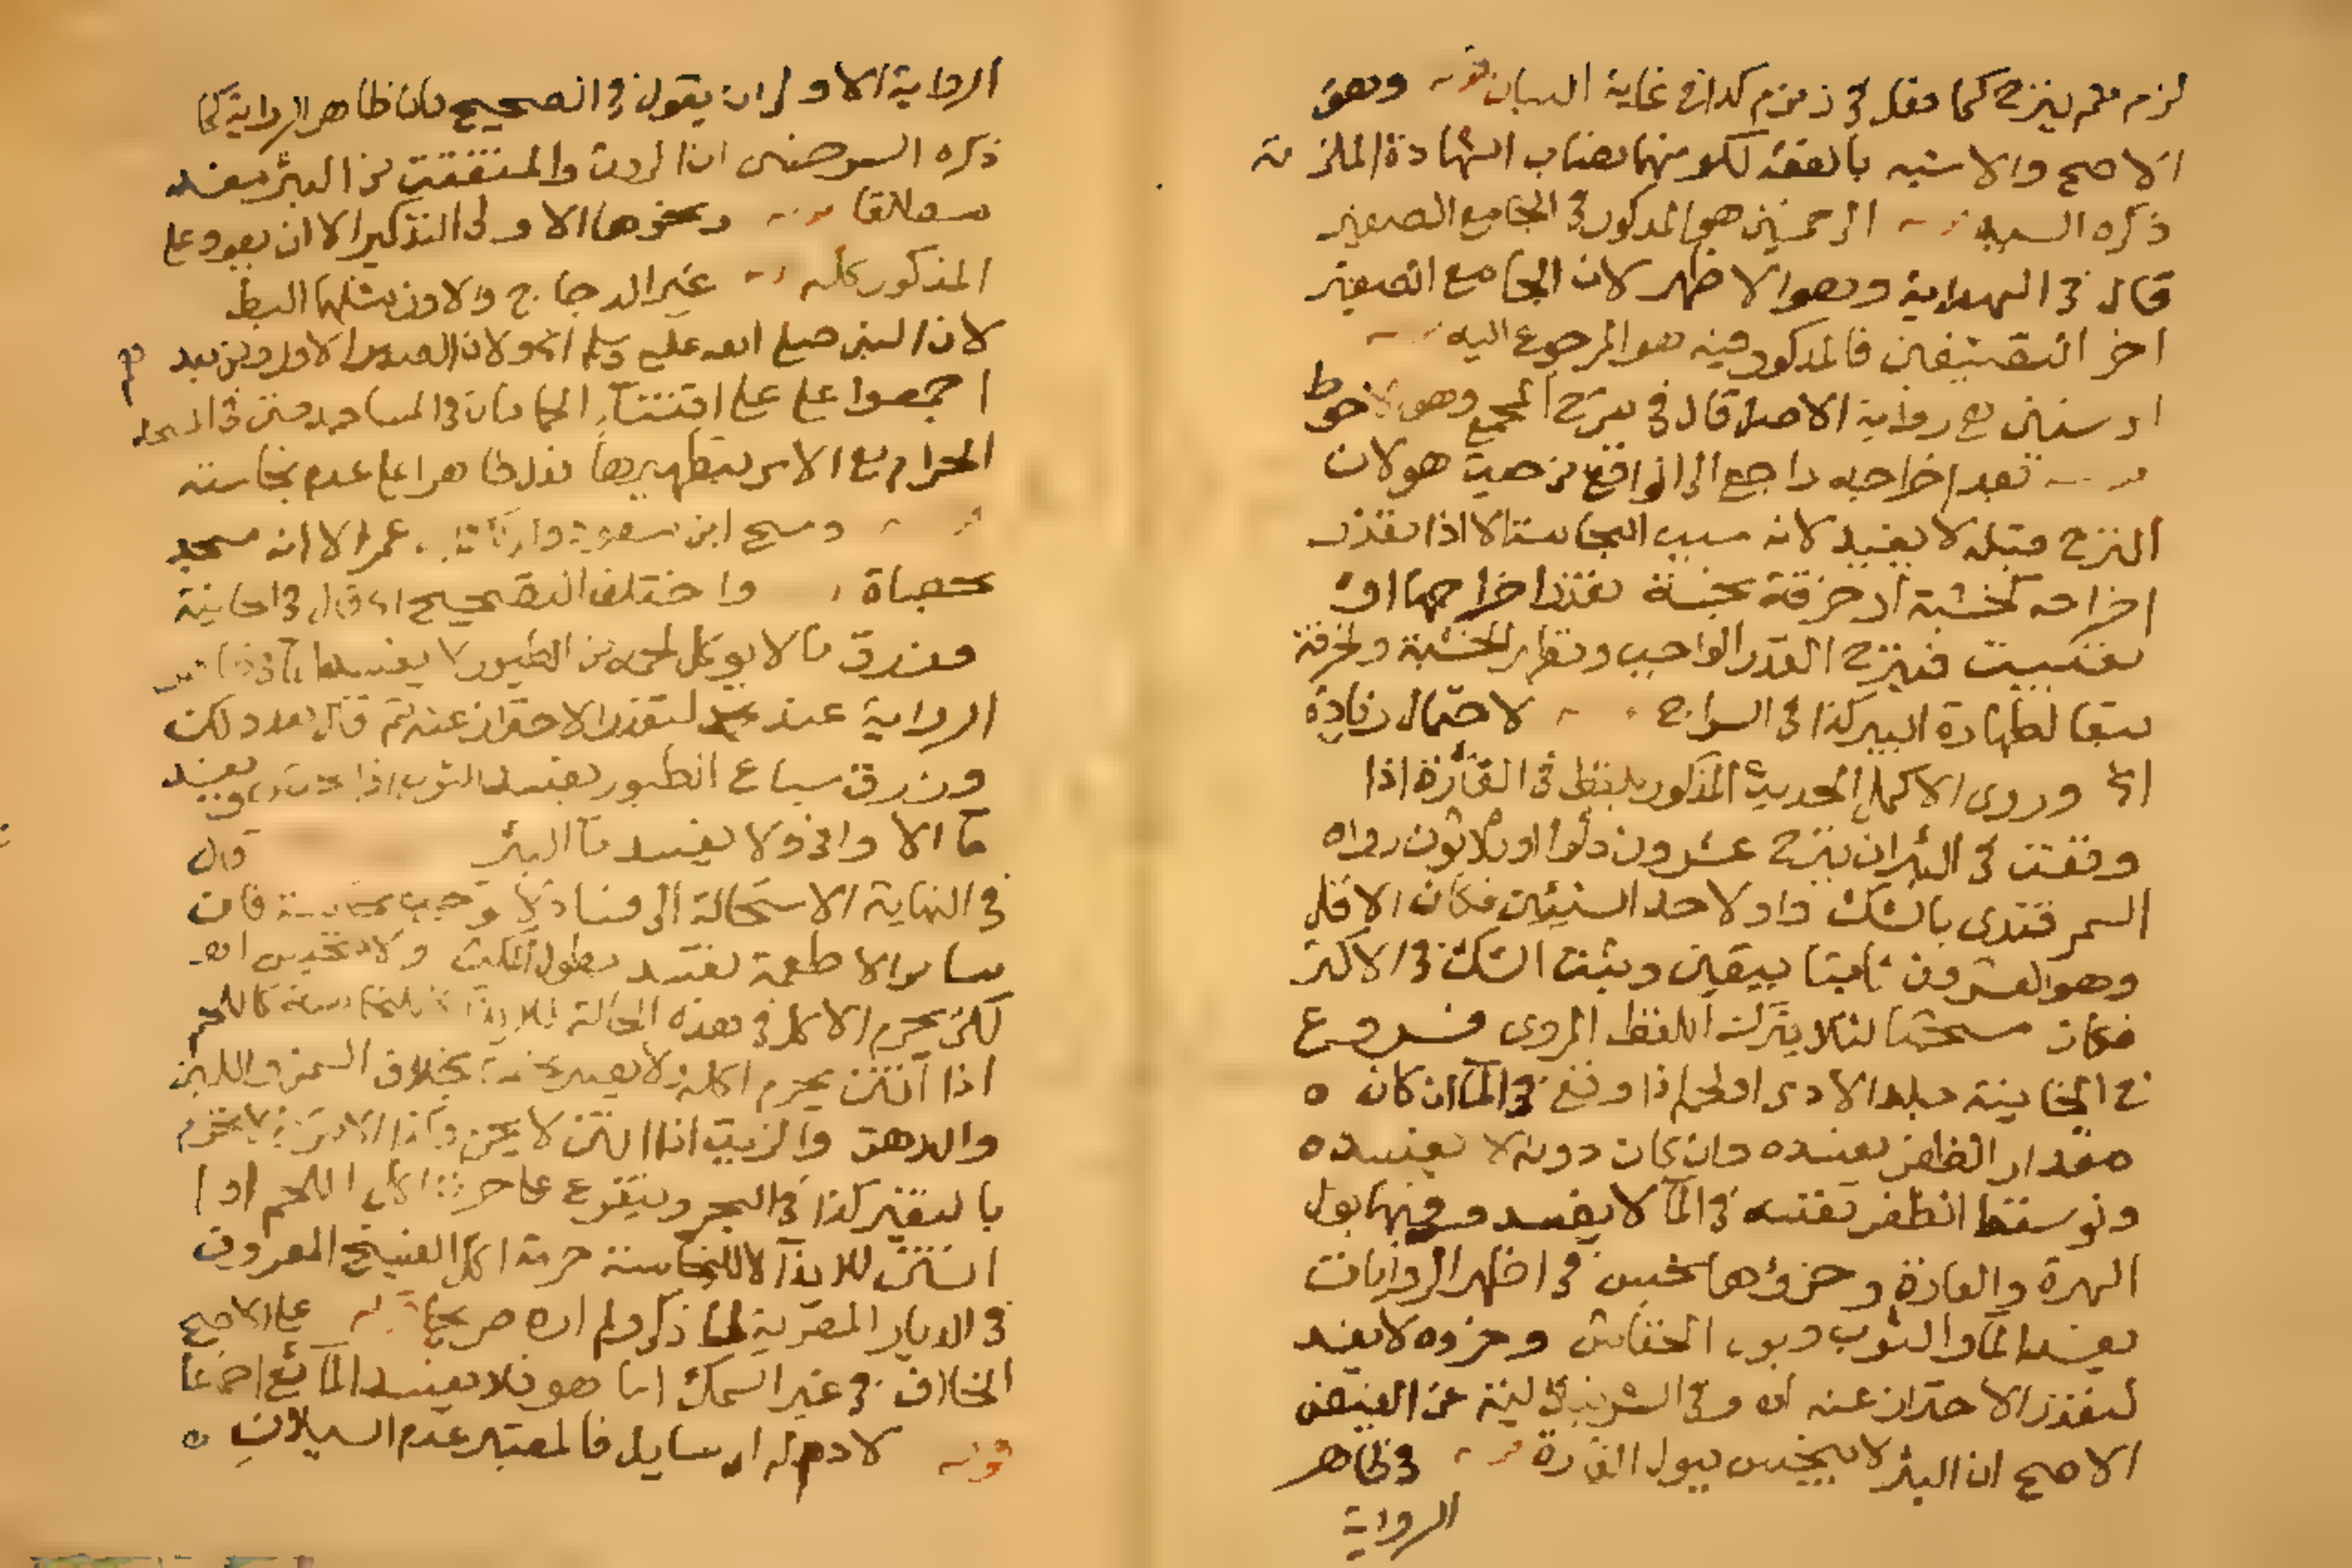 لزم ثم ينزح كما فعل في زمزم كذا في غاية البيان قوله وهو
الاصح والاشبه بالفقه لكونهما نصاب الشهادة الملزمة
ذكره السيد الرحمتين هو المذكور في الجامع الصغير
قال في الهداية وهو الاظهر لان الجامع الصغير
اخر التصنيفين فالمذكور فيه هو المرجوع اليه
او ستين رواية الاصل قال في المجمع وهو الاحوط
بعد اخراجه راجع الى الواقع من حيث هو لان
النزح قبله لا يفيد لانه سبب النجاسة الا اذا تعذر
اخراجه كخشبة او خرقة نجسة تعذر اخراجها او
تغيبت فينزح القدر الواجب وتطهر الخشبة والخرقة
تبعا لطهارة البير كذا في السراج لاحتمال زيادة
الخ وروى الاكمل الحديث المذكور بلفظ في الفأرة اذا
وقعت في البئر ان ينزح عشرون دلوا او ثلاثون رواه
السمرقندى بالشك واو لاحد الشيئين فكان الاقل
وهو العشرون ثابتا بيقين ويثبت الشك في الاكثر
فكان مستحبا لئلا يترك اللفظ المروى فروع
في الخانية جلد الادمى او لحمه اذا وقع في الما ان كان
مقدار الظفر يفسده وان كان دونه لا يفسده
ولو سقط الظفر نفسه في الما لا يفسد وفيها بول
الهرة والفارة وخرؤها نجس في اظهر الروايات
يفسد الما والثوب وبول الخفاش وخروه لا يفسد
لتعذر الاحتراز عنه اه وفي الشرنبلالية عن الفيض
الاصح ان البئر لا ينجس ببول الفارة وظاهر
الرواية
الرواية الاولى ان يقول في الصحيح فان ظاهر الرواية كما
ذكره السرخسى ان الروث والمتفتت من البئر مفسد
مطلقا ونحوها الاولى التذكير الا ان يعود على
المذكور كله غير الدجاج والاوز مثلهما البط
لان النبي صلى الله عليه وسلم الخ ولان الصدر الاول ومن بعدهم
اجمعوا على على اقتناء الحمامات في المساجد حتى في المسجد
الحرام مع الامر بتطهيرها فدل ظاهرا على عدم نجاسته
ومسح ابن مسعود عمر الا انه مسحه
بحصاة واختلف التصحيح الخ قال في الخانية
وذرق ما لا يوكل لحمه من الطيور لا يفسد
الرواية عند لتعذر الاحتراز عنه ثم قال بعد ذلك
وذرق سباع الطيور يفسد الثوب اذا ويفسد
ما الاوانى ولا يفسد ما البئر قال
في النهاية الاستحالة الى فساد لا توجب نجاسة فان
سائر الاطعمة تفسد بطول المكث ولا تنجس اه
لكن يحرم الاكل في هذه الحالة للايذاء لا للنجاسة كاللحم
اذا انتن يحرم اكله ولا يصير نجسا بخلاف السمن واللبن
والدهن والزيت اذا انتن لا يحرم وكذا الاشربة لا تحرم
بالتغير كذا في البحر ويتفرع على حرمة اكل اللحم اذا
انتن للايذا لا للنجاسة حرمة اكل الفسيخ المعروف
في الديار المصرية لما ذكر ولم اره صريحا قوله على الاصح
الخلاف في غير السمك اما هو فلا يفسد المائع اجماعا
قوله لا دم له اى سايل فالمعتبر عدم السيلان